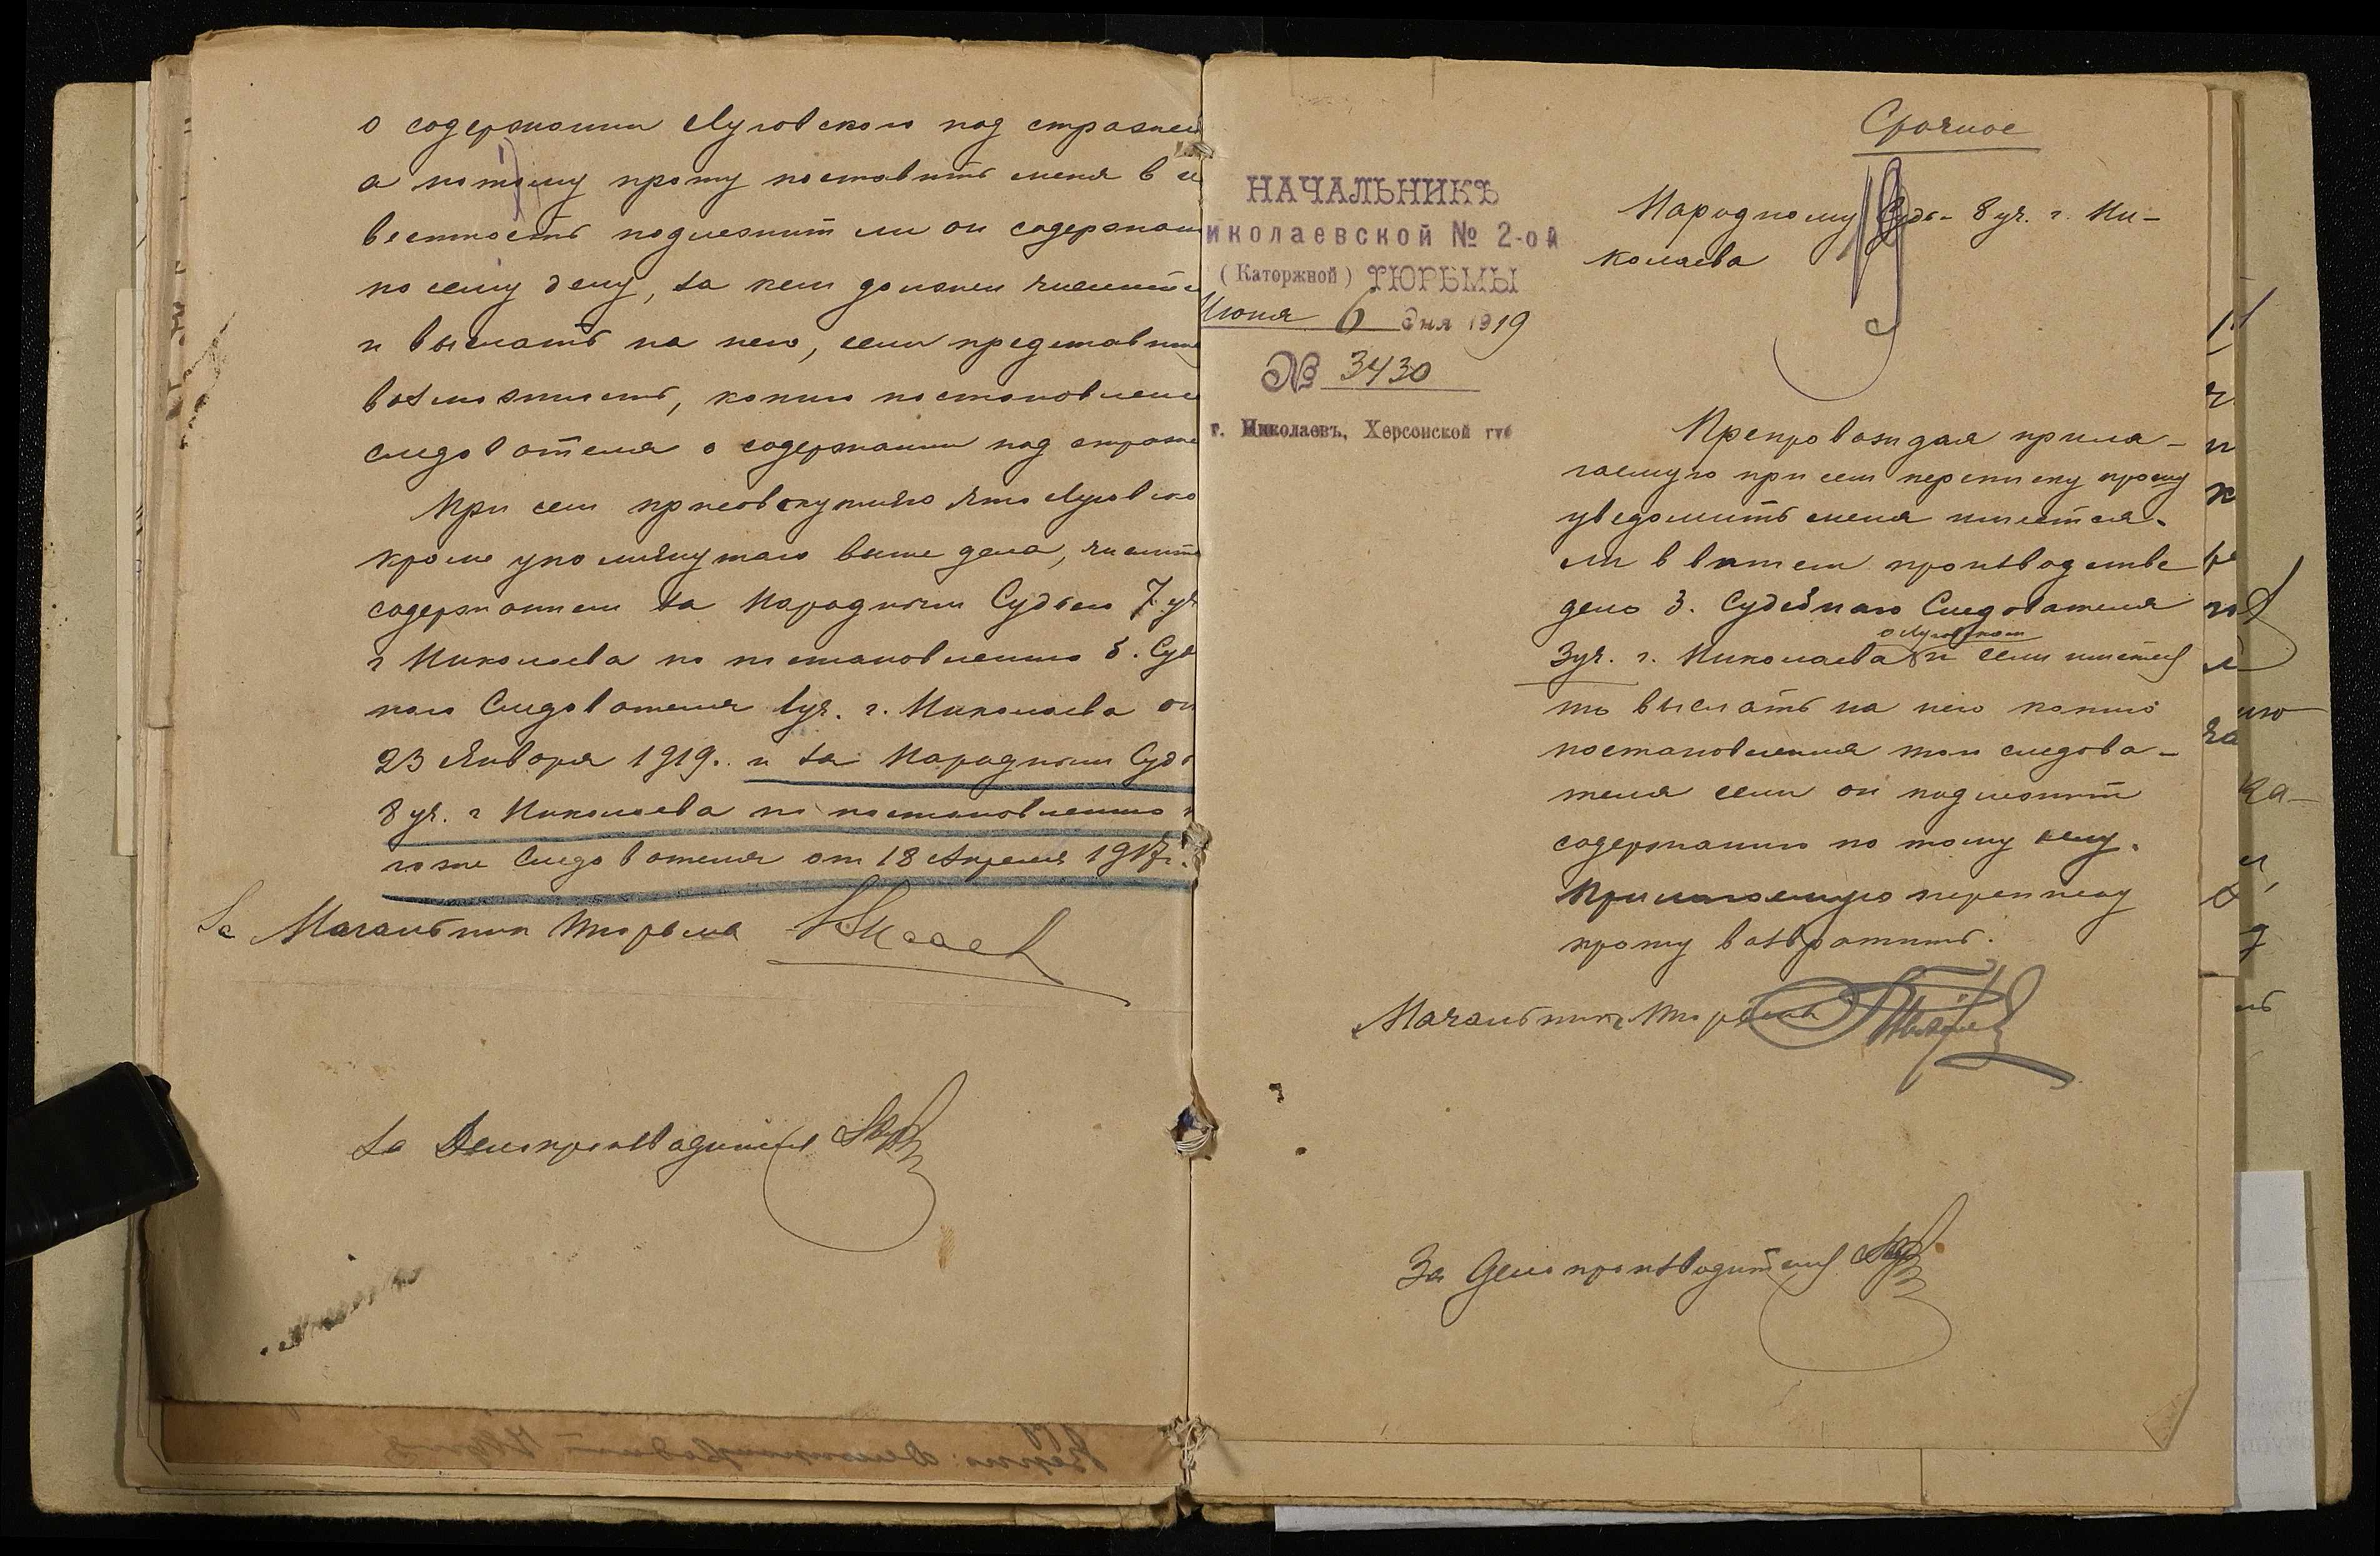 о содержании Луговского под стражей
а потому прошу поставить меня в и
вестность подлежит ли он содержан
по сему делу, за кем должен числится
и выслать на него, если представится
возможность, копию постановлени
следователя о содержании под страже
При сем присовокупляю что Луговско
кроме упомянутаго выше дела, числит
содержанием за Народным Судьею 7 уч
г Николаева по постановлению б. Суд
наго Следователя 1уч. г. Николаева от
23 Января 1919. и за Народным Судь
8 уч. г Николаева по постановлению
гоже Следователя от 18 Апреля 1917г.
За Начальник тюрьмы
За Делопроизводителя
Срочное
НАЧАЛЬНИКЪ
иколаевской № 2-ой
(Каторжной) ТЮРЬМЫ
Июня 6 дня 1919
№ 3430
г. Николаевъ, Херсонской губ
Народному Судье 8 уч. г. Ни-
колаева
Препровождая прила-
гаемую при сем переписку прошу
уведомить меня имеется-
ли в вашем производстве
дело б. Судебнаго Следователя
3уч. г. Николаева о Луговском и если имеется
то выслать на него копию
постановления того следова-
теля если он подлежит
содержанию по тому делу.
Прилагаемую переписку
прошу возвратить.
Начальник Тюрьмы
За Делопроизводителя